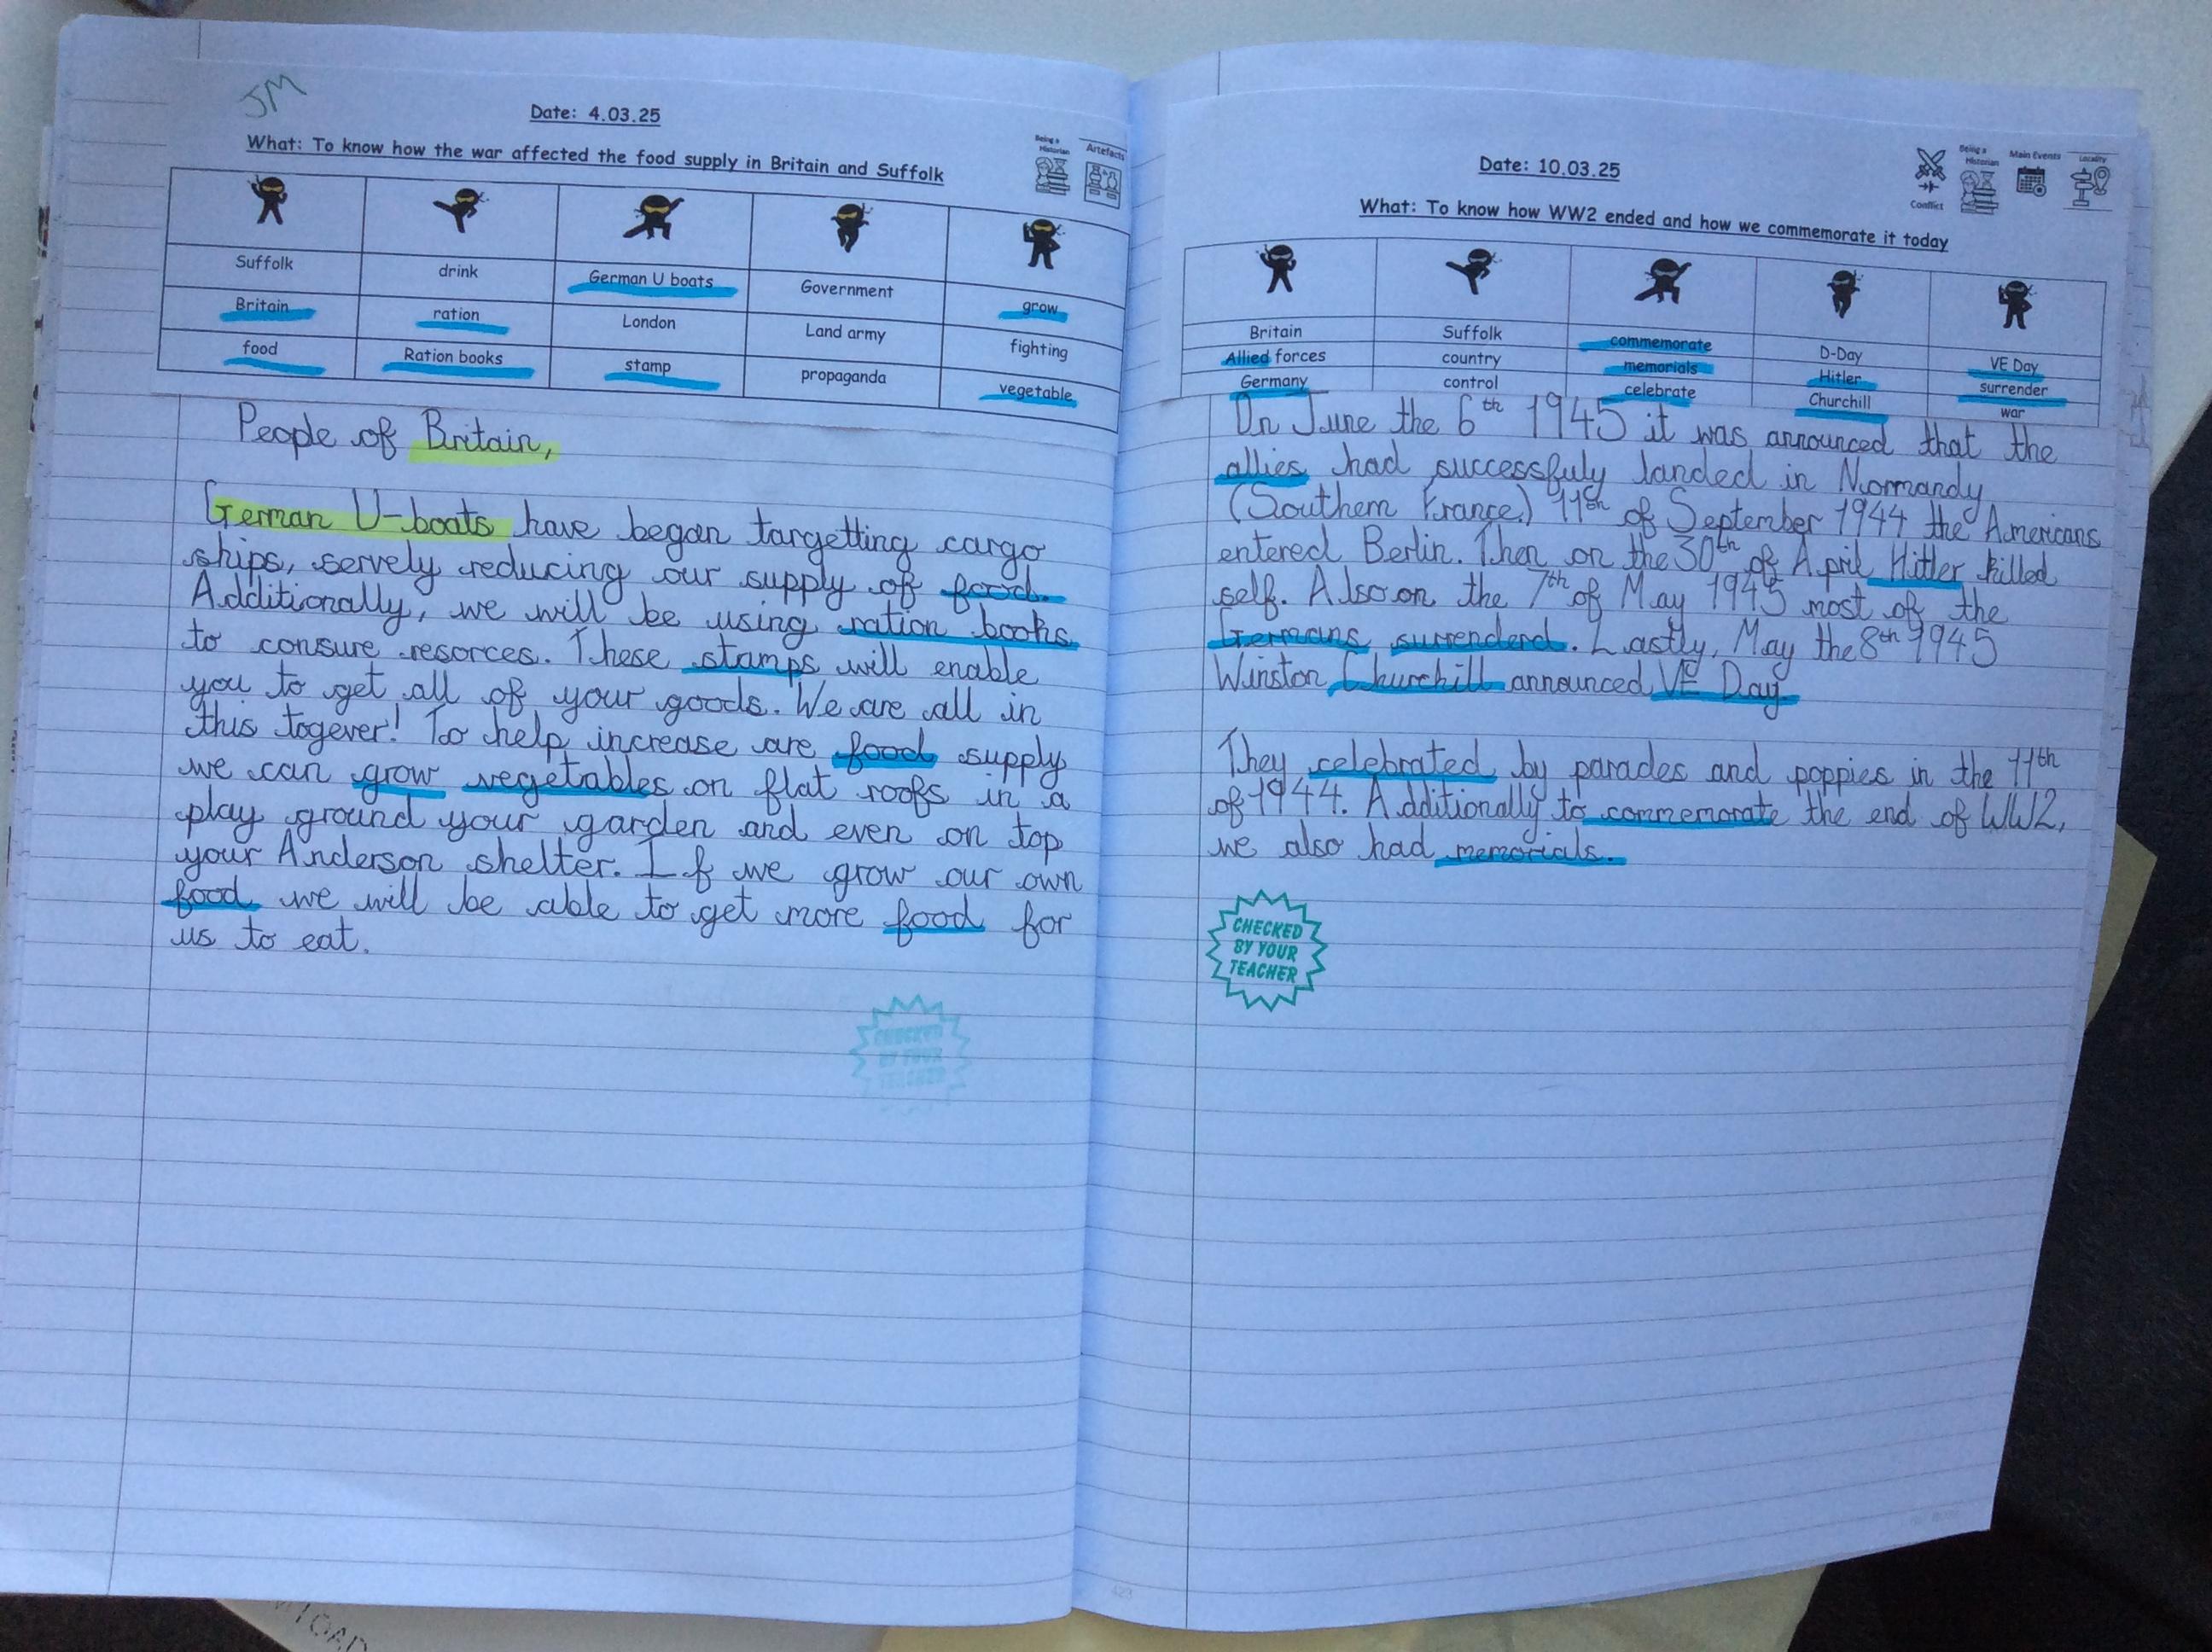 JM
Date: 4.03.25
What: To know how the war affected the food supply in Britain and Suffolk
Being a Historian
Artefacts
Suffolk drink German U boats Government grow
Britain ration London Land army fighting
food Ration books stamp propaganda vegetable
People of Britain,
German U-boats have began targetting cargo
ships, servely reducing our supply of food.
Additionally, we will be using ration books
to consure resorces. These stamps will enable
you to get all of your goods. We are all in
this togever! To help increase are food supply
we can grow vegetables on flat roofs in a
play ground your garden and even on top
your Anderson shelter. If we grow our own
food we will be able to get more food for
us to eat.
CHECKED
BY YOUR
TEACHER
Date: 10.03.25
What: To know how WW2 ended and how we commemorate it today
Conflict
Being a Historian
Main Events
Locality
Britain Suffolk commemorate D-Day VE Day
Allied forces country memorials Hitler surrender
Germany control celebrate Churchill war
On June the 6th 1945 it was announced that the
allies had successfuly landed in Normandy
(Southern France.) 11th of September 1944 the Americans
entered Berlin. Then on the 30th of April Hitler killed
self. Also on the 7th of May 1945 most of the
Germans surrenderd. Lastly, May the 8th 1945
Winston Churchill announced VE Day.
They celebrated by parades and poppies in the 11th
of 1944. Additionally to commemorate the end of WW2,
we also had memorials.
CHECKED
BY YOUR
TEACHER